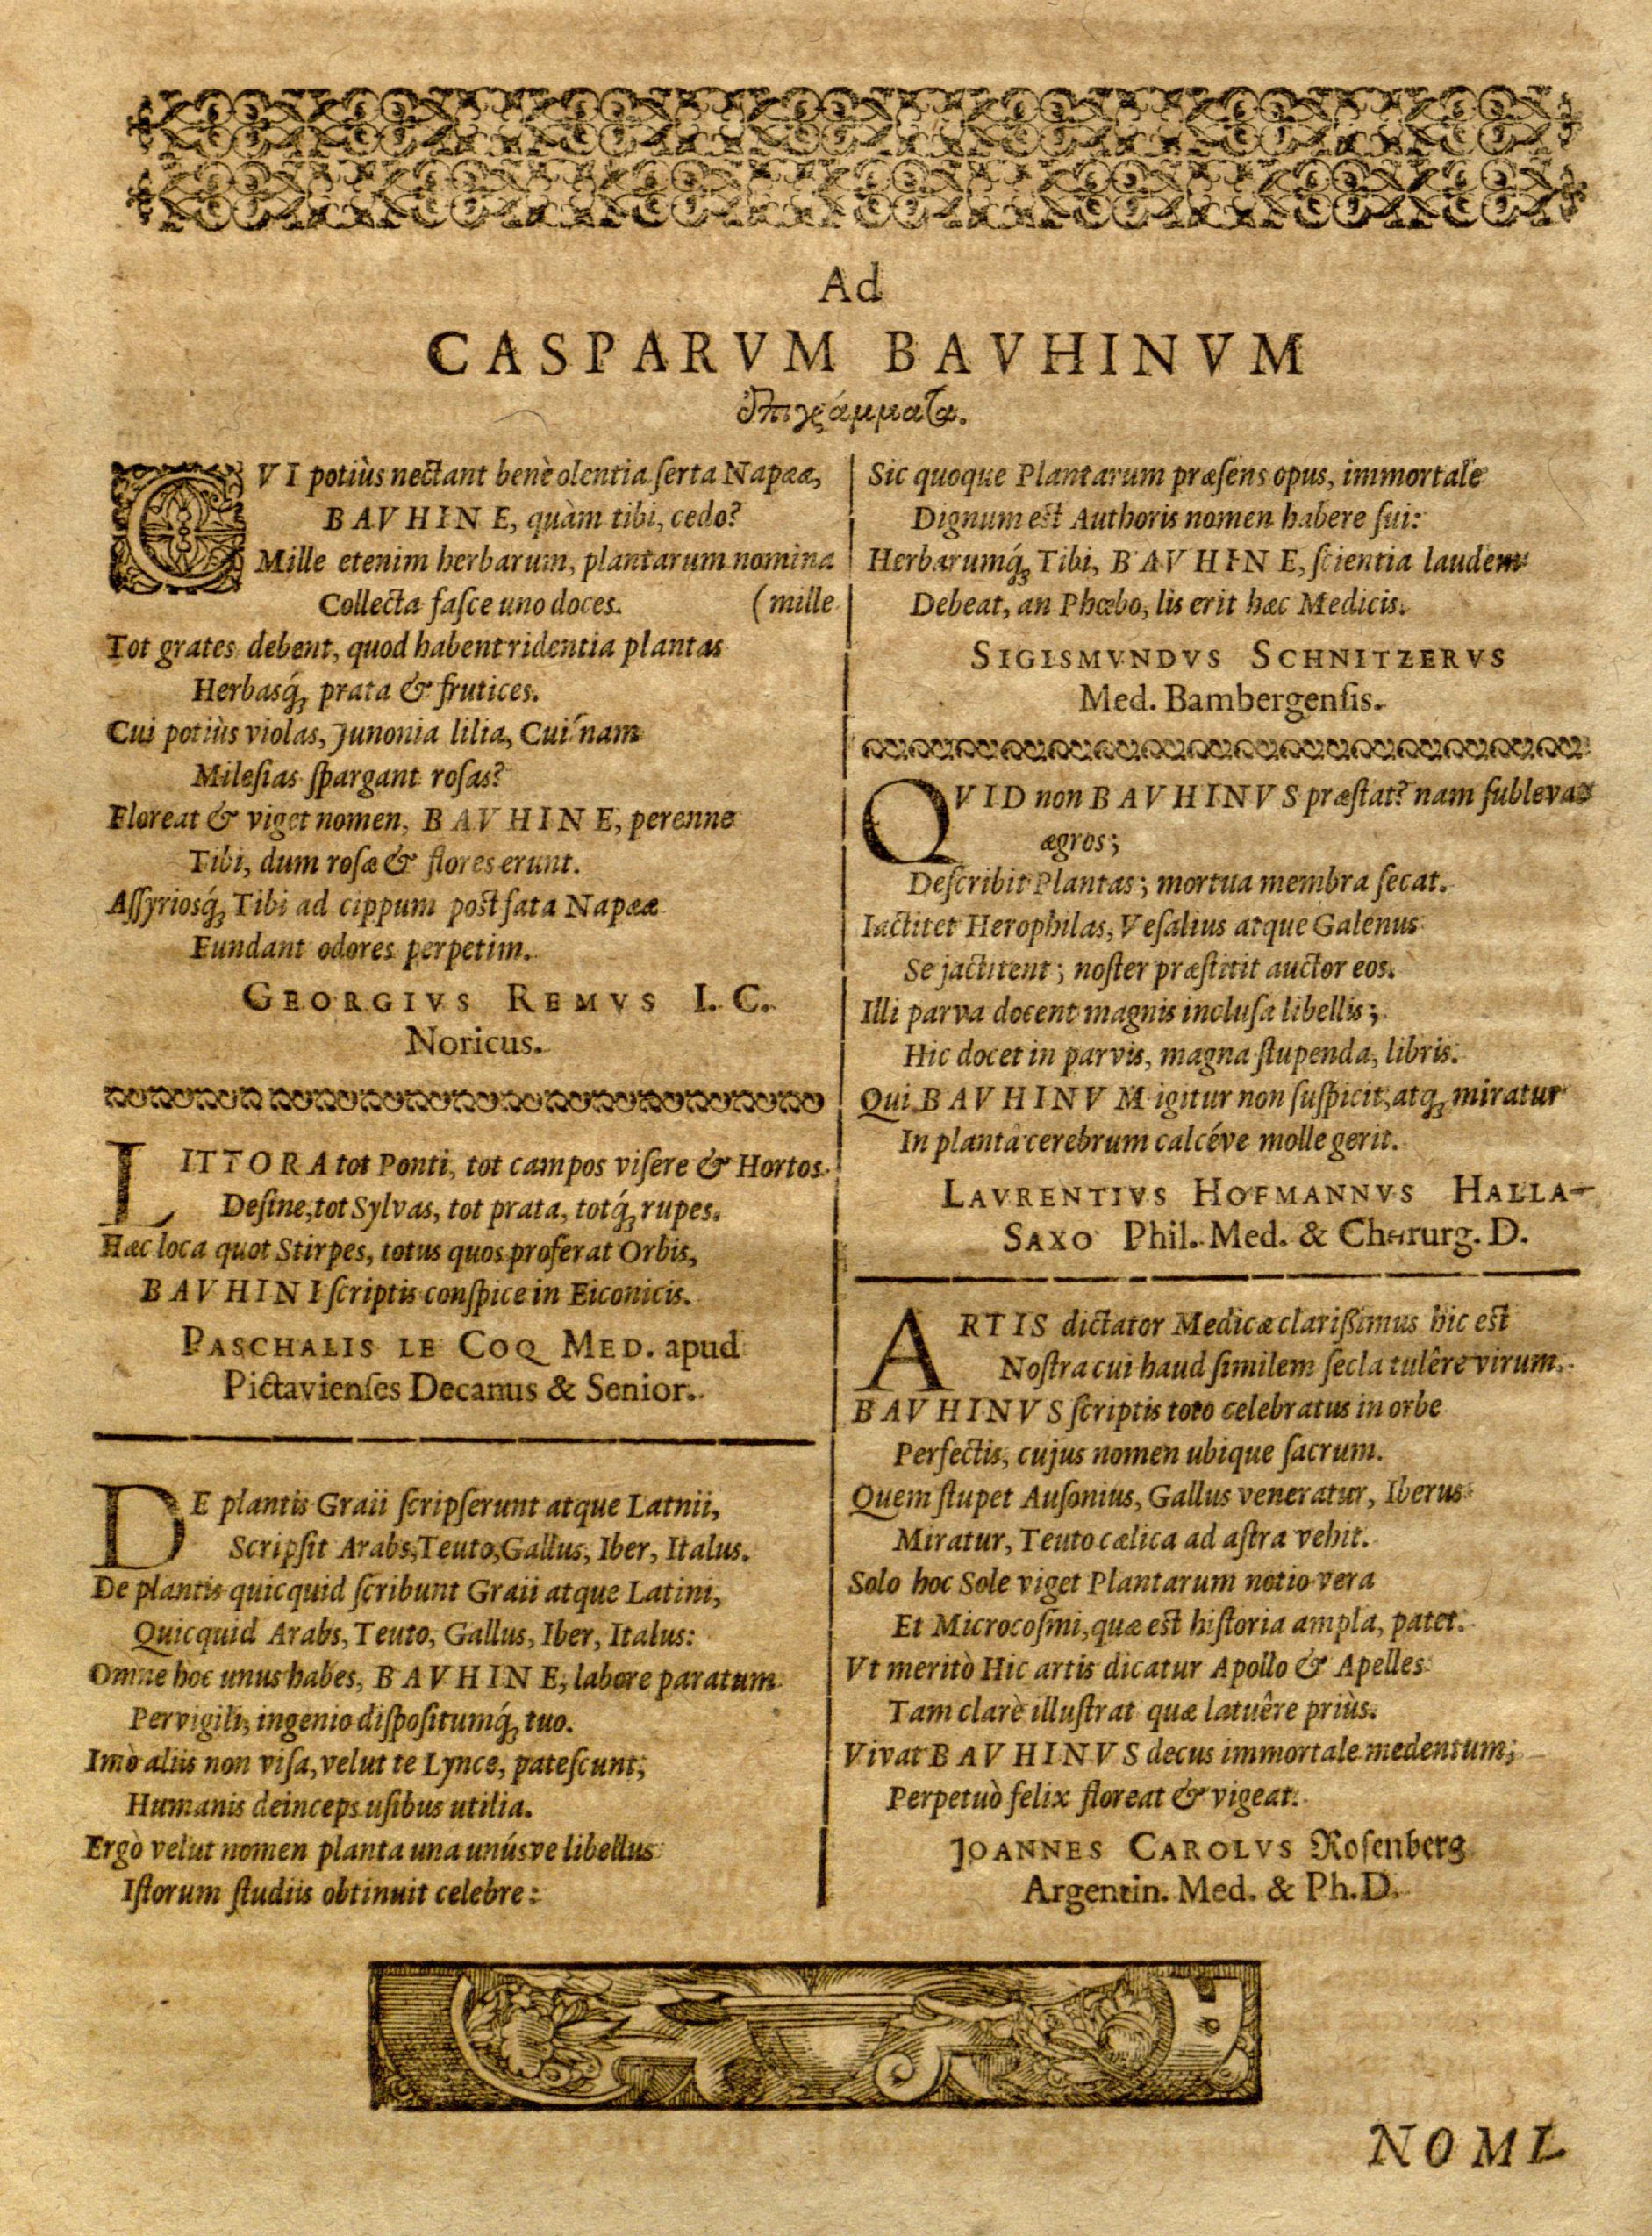 Ad
CASPARVM BAVHINVM
ἐπιγράμματα.
CVI potiùs nectant benè olentia ſerta Napææ,
BAVHINE, quàm tibi, cedo?
Mille etenim herbarum, plantarum nomina
Collecta faſce uno doces. (mille
Tot grates debent, quod habent ridentia plantas
Herbasq́; prata & frutices.
Cui potiùs violas, Junonia lilia, Cui nam
Mileſias ſpargant roſas?
Floreat & viget nomen, BAVHINE, perenne
Tibi, dum roſæ & flores erunt.
Aſſyriosq́; Tibi ad cippum poſt fata Napææ
Fundant odores perpetim.
GEORGIVS REMVS I. C.
Noricus.
LITTORA tot Ponti, tot campos viſere & Hortos
Deſine, tot Sylvas, tot prata, totq́; rupes.
Hæc loca quot Stirpes, totus quos proferat Orbis,
BAVHINI ſcriptis conſpice in Eiconicis.
PASCHALIS LE COQ MED. apud
Pictavienſes Decanus & Senior.
DE plantis Graii ſcripſerunt atque Latnii,
Scripſit Arabs, Teuto, Gallus, Iber, Italus.
De plantis quicquid ſcribunt Graii atque Latini,
Quicquid Arabs, Teuto, Gallus, Iber, Italus:
Omne hoc unus habes, BAVHINE, labore paratum
Pervigili, ingenio diſpoſitumq́; tuo.
Imò aliis non viſa, velut te Lynce, pateſcunt,
Humanis deinceps uſibus utilia.
Ergò velut nomen planta una unúsve libellus
Iſtorum ſtudiis obtinuit celebre:
Sic quoque Plantarum præſens opus, immortale
Dignum eſt Authoris nomen habere ſui:
Herbarumq́; Tibi, BAVHINE, ſcientia laudem
Debeat, an Phœbo, lis erit hæc Medicis.
SIGISMVNDVS SCHNITZERVS
Med. Bambergenſis.
QVID non BAVHINVS præſtat? nam ſublevat
ægros;
Deſcribit Plantas; mortua membra ſecat.
Iactitet Herophilas, Veſalius atque Galenus
Se jactitent; noſter præſtitit auctor eos.
Illi parva docent magnis incluſa libellis;
Hic docet in parvis, magna ſtupenda, libris.
Qui BAVHINVM igitur non ſuſpicit, atq; miratur
In planta cerebrum calcéve molle gerit.
LAVRENTIVS HOFMANNVS HALLA-
SAXO Phil. Med. & Cherurg. D.
ARTIS dictator Medicæ clariſſimus hic eſt
Noſtra cui haud ſimilem ſecla tulêre virum.
BAVHINVS ſcriptis toto celebratus in orbe
Perfectis, cujus nomen ubique ſacrum.
Quem ſtupet Auſonius, Gallus veneratur, Iberus
Miratur, Teuto cælica ad aſtra vehit.
Solo hoc Sole viget Plantarum notio vera
Et Microcoſmi, quæ eſt hiſtoria ampla, patet.
Vt meritò Hic artis dicatur Apollo & Apelles
Tam clarè illuſtrat quæ latuêre priùs.
Vivat BAVHINVS decus immortale medentum;
Perpetuò felix floreat & vigeat.
JOANNES CAROLVS Roſenberg
Argentin. Med. & Ph. D.
NOMI-